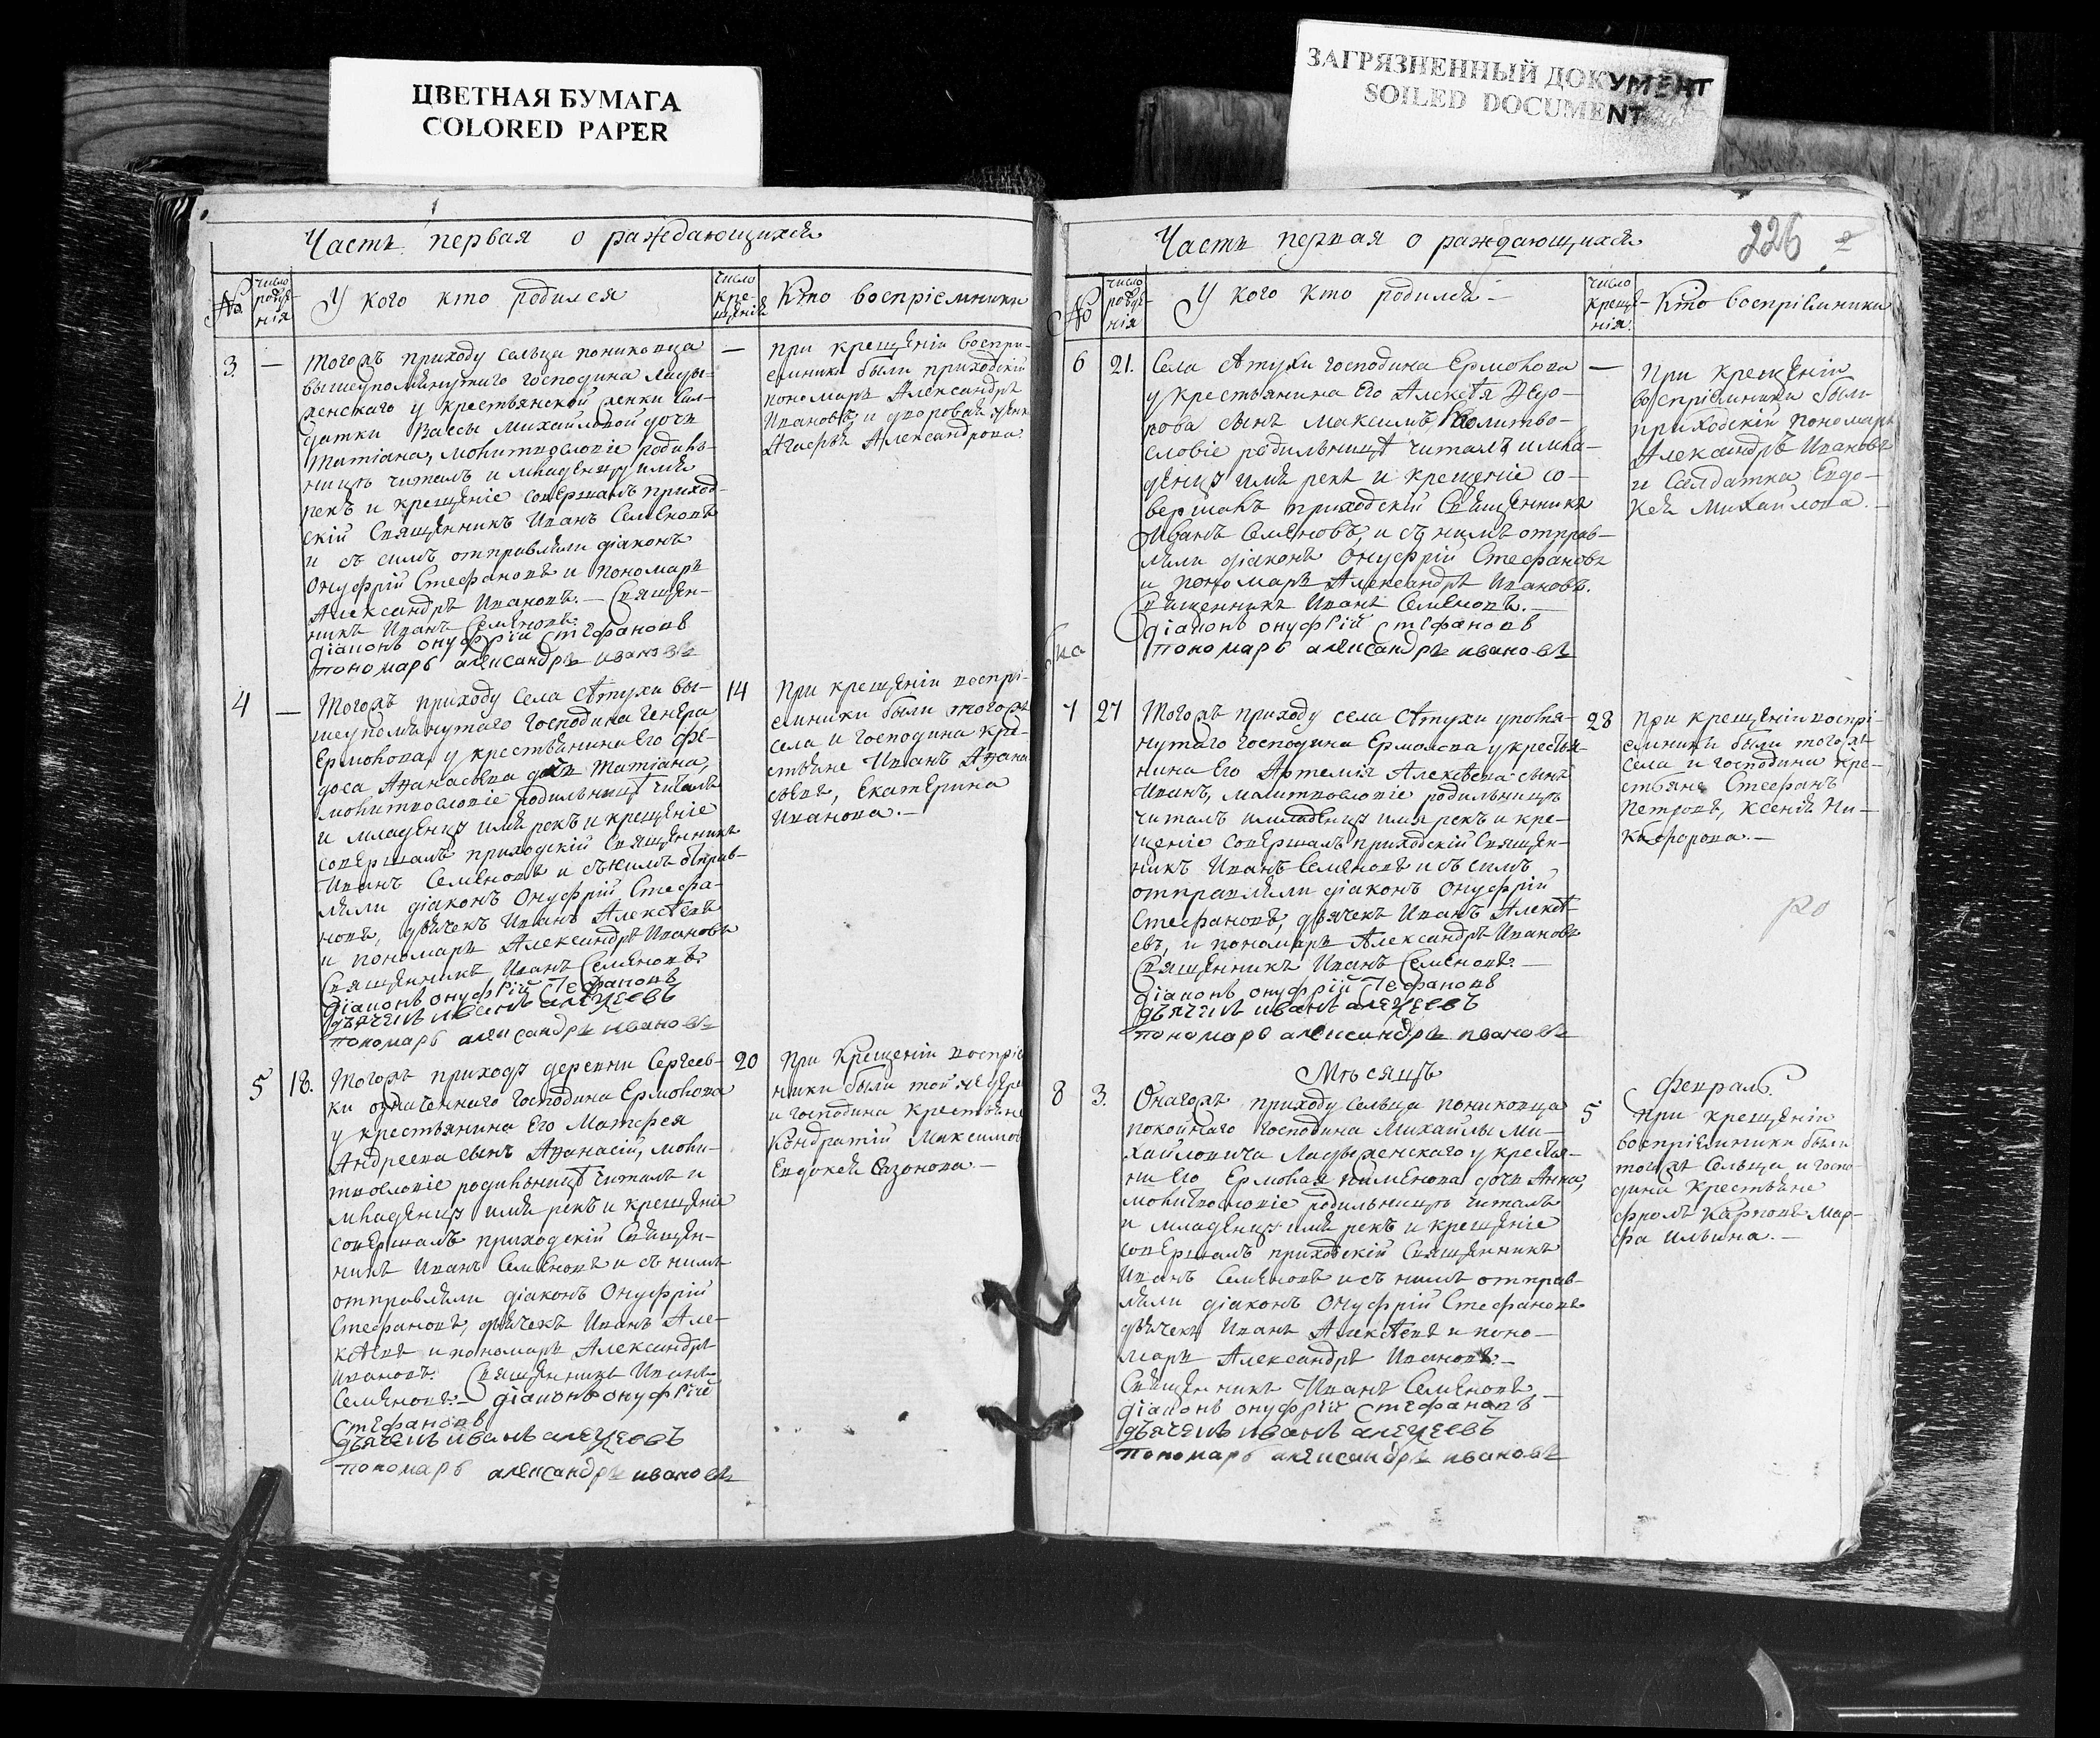 ЦВЕТНАЯ БУМАГА
COLORED PAPER
ЗАГРЯЗНЕННЫЙ ДОКУМЕНТ
SOILED DOCUMENT
Часть первая о раждающихся
№
число рожде-нія
У кого кто родился
число кре-щенія
Кто воспріемники
3.
—
Тогожъ приходу сельца пониковца
вышеупомянутаго господина лады-
женскаго у крестьянской женки сал-
датки Вассы Михайловой дочь
Татіана, молитвословіе родиль-
ницѣ читалъ и младенцу имя
рекъ и крещеніе совершалъ приход-
скій Священникъ Иванъ Семеновъ
и съ симъ отправляли діаконъ
Онуфрій Стефановъ и пономарь
Александръ Ивановъ. — Священ-
никъ Иванъ Семеновъ.
діаконъ онуфрій Стефановъ
пономарь александръ ивановъ
—
При крещеніи воспрі-
емники были приходскій
пономарь Александръ
Ивановъ и дворовая женка
Агафья Александрова.
4
—
Тогожъ приходу села Атухи вы-
шеупомянутаго господина Генера
Ермолова, у крестьянина Его Фе-
доса Афанасьева дочь Татіана,
молитвословіе родильницѣ читалъ
и младенцу имя рекъ и крещеніе
совершалъ приходскій Священникъ
Иванъ Семеновъ и съ нимъ отправ-
ляли діаконъ Онуфрій Стефа-
новъ, дьячекъ Иванъ Алексѣевъ
и пономарь Александръ Ивановъ
Священникъ Иванъ Семеновъ.
діаконъ онуфрій Стефановъ
дьячекъ иванъ алеѯеевъ
пономарь александръ ивановъ
14
При крещеніи воспрі-
емники были тогожъ
села и господина кре-
стьяне Иванъ Афана
сьевъ, Екатерина
Иванова. —
5
18.
Тогожъ приходу деревни Сергеев-
ки означеннаго господина Ермолова
у крестьянина Его Матфея
Андреева сынъ Афанасій, моли-
твословіе родильницѣ читалъ и
младенцу имя рекъ и крещеніе
совершалъ приходскій Священ-
никъ Иванъ Семеновъ и съ нимъ
отправляли діаконъ Онуфрій
Стефановъ, дьячекъ Иванъ Але-
ксѣевъ и пономарь Александръ
Ивановъ. Священникъ Иванъ
Семеновъ. — діаконъ онуфрій
Стефановъ
дьячекъ иванъ алеѯеевъ
пономарь александръ ивановъ
20
При Крещеніи воспріе
мники были той же дере
и господина крестьяне
Кондратій Максимов
Евдокея Сазонова —
Часть первая о раждающихся
226
2
№
число рожде-нія
У кого кто родился —
число креще-нія.
Кто воспріемники
6
21.
Села Атухи господина Ермолова
у крестьянина Его Алексѣя Ѳедо-
рова сынъ Максимъ молитво-
словіе родильницѣ читалъ и мла-
денцу имя рекъ и крещеніе со-
вершалъ приходскій Священникъ
Иванъ Семеновъ, и съ нимъ отправ-
ляли діаконъ Онуфрій Стефановъ
и пономарь Александръ Ивановъ.
Священникъ Иванъ Семеновъ. —
діаконъ онуфрій Стефановъ
пономарь александръ ивановъ
—
При крещеніи
воспріемники были
приходскій пономарь
Александръ Ивановъ
и Салдатка Евдо-
кея Михайлова. —
7
27
Тогожъ приходу села Атухи упомя-
нутаго господина Ермолова у крестья-
нина Его Артемія Алексѣева сынъ
Иванъ, малитвословіе родильницѣ
читалъ и младенцу имя рекъ и кре-
щеніе совершалъ приходскій Священ-
никъ Иванъ Семеновъ и съ симъ
отправляли діаконъ Онуфрій
Стефановъ, дьячекъ Иванъ Алексѣ-
евъ, и пономарь Александръ Ивановъ
Священникъ Иванъ Семеновъ. —
діаконъ онуфрій Стефановъ
дьячекъ иванъ алеѯеевъ
пономарь александръ ивановъ
28
При крещеніи воспрі-
емники были тогожъ
села и господина кре-
стьяне Стефанъ
Петровъ, Ксенія Ни-
кифорова. —
Мѣсяцъ
Февраль.
8
3.
Онагожъ приходу Сельца пониковца
покойнаго господина Михайлы Ми-
хайловича Ладыженскаго у крестья-
ни Его Ермолая Пименова дочь Анна,
молитвословіе родильницѣ читалъ
и младенцу имя рекъ и крещеніе
совершалъ приходскій Священникъ
Иванъ Семеновъ и съ нимъ отправ-
ляли діаконъ Онуфрій Стефановъ
дьячекъ Иванъ Алексѣевъ и поно-
марь Александръ Ивановъ. —
Священникъ Иванъ Семеновъ. —
діаконъ онуфрій Стефановъ
дьячекъ иванъ алеѯеевъ
пономарь александръ ивановъ
5
При крещеніи
воспріемники были
тогожъ Сельца и госпо-
дина Крестьяне
Фролъ Карповъ Мар-
фа Ильина. —